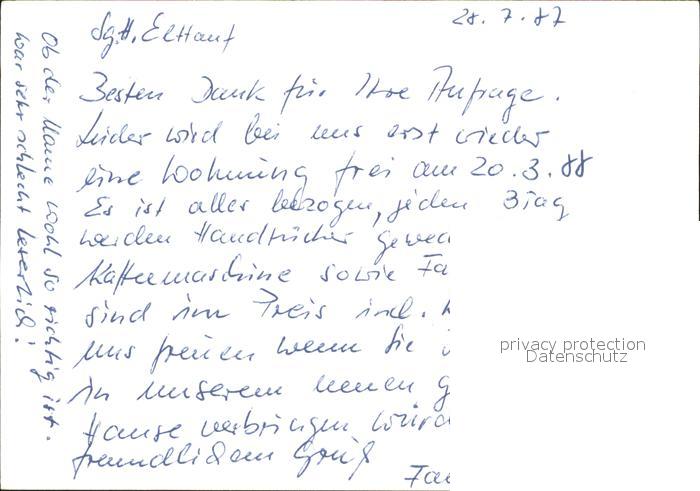 28.7.87
Sg.H. Elthauf
Besten Dank für Ihre Anfrage.
Leider wird bei uns erst wieder
eine Wohnung frei am 20.3.88
Es ist alles bezogen, jeden 3 Tag
werden Handtücher gewec
Kaffeemaschine sowie Fa
sind im Preis incl.
uns freuen wenn Sie
in unserem neuen g
Hause verbringen würd
freundlichem Gruß
Fa
Ob der Name wohl so richtig ist.
war sehr schlecht leserlich!
privacy protection
Datenschutz